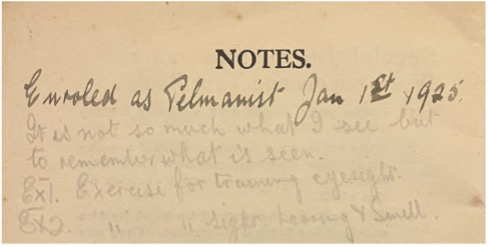 NOTES.
Enroled as Pelmanist Jan 1st 1925.
It is not so much what I see but
to remember what is seen.
Ex1. Exercise for training eyesight.
Ex2. " " sight. hearing & Smell.